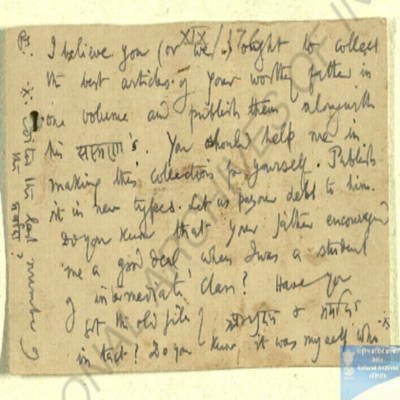 XIX/376
I believe you (or we) ought to collect
the best articles of your worthy father in
one volume and publish them alongwith
his संस्मरण's. You should help me in
making this collection for yourself. Publish
it in new types. Let us pay our debt to him.
Do you know that your father encouraged
me a good deal when I was a student
of intermediate class? Have you
got the old file of &
in tact? Do you know it was myself who